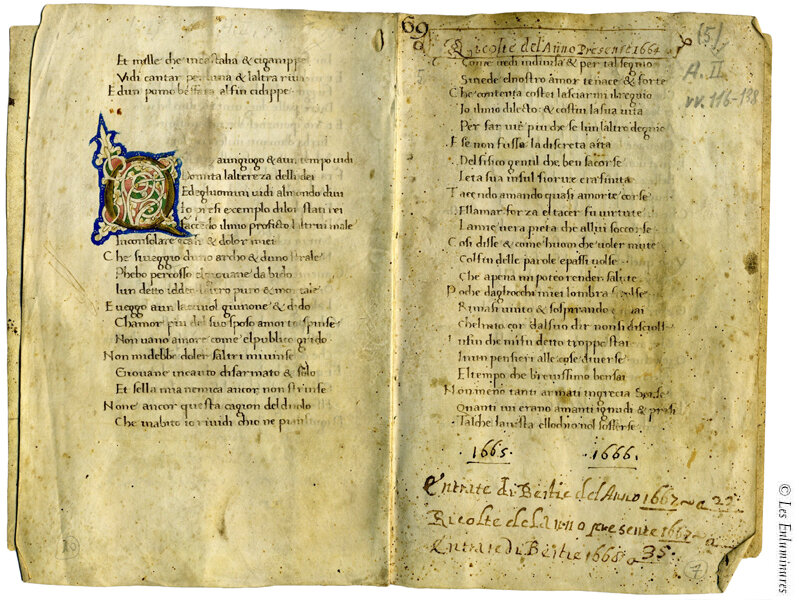 Et mille che in castalia & eganippe
Vidi cantar per luna & laltra riva
E dun pomo beffata alfin cidippe
Q aungiogo & aun tempo vidi
Domita laltereza delli dei
Et de glhuomini vidi almondo divi
Io presi exemplo dilor stati rei
Faccendo ilmio profitto laltrui male
Inconsolare & dolor miei
Che suveggio duno archo & duno strale
Phebo percosso elgiovane dabido
lun detto iddeo laltro puro & mortale
E veggo aun lacciuol giunone & dido
Chamor piu del suo sposo amorte spinse
Non vano amore come elpublico grido
Non midebbe doler saltri mivinse
Giovane incauto disarmato & solo
Et sella mia nemica ancor non strinse
None ancor questa cagion del duolo
Che inabito io rividi chio ne piansi
69
Ricolte del Anno Presente 1664
(5)
A. II
vv. 116-138
Come vedi indivisa & per tal segnio
Sivede elnostro amor tenace & forte
Che contenta costei lasciarmi ilregnio
Io ilmio dilecto & costui lasua vita
Per far via piu che se lun laltro degnio
E se non fusse la discreta aita
Del fisico gentil che ben sacorse
Leta sua insul fiorire era finita
Tacendo amando quasi amorte corse
Ellamar forza eltacer fu virtute
La mie vera pieta che allui soccorse
Cosi disse & come huom che voler mute
Col fin delle parole e passi volse
Che apena mi poteo render salute
Poche dagliocchi miei lombra si tolse
Rimasi vinto & sospirando andai
Chelmio cor dalsuo dir non si disciolse
Infin che mi fu detto troppo stai
In un pensieri alle cose diverse
El tempo che brevissimo ben sai
Non meno tanti armati ingrecia Xerse
Quanti ivi erano amanti ignudi & presi
Talche lavista ellochio nol sofferse
1665. 1666.
Entrate di Bestie del Anno 1667 a 22
Ricolte dela nno presente 1667 a
Entrate di Bestie 1668 a 35.
10
7
© Les Enluminures